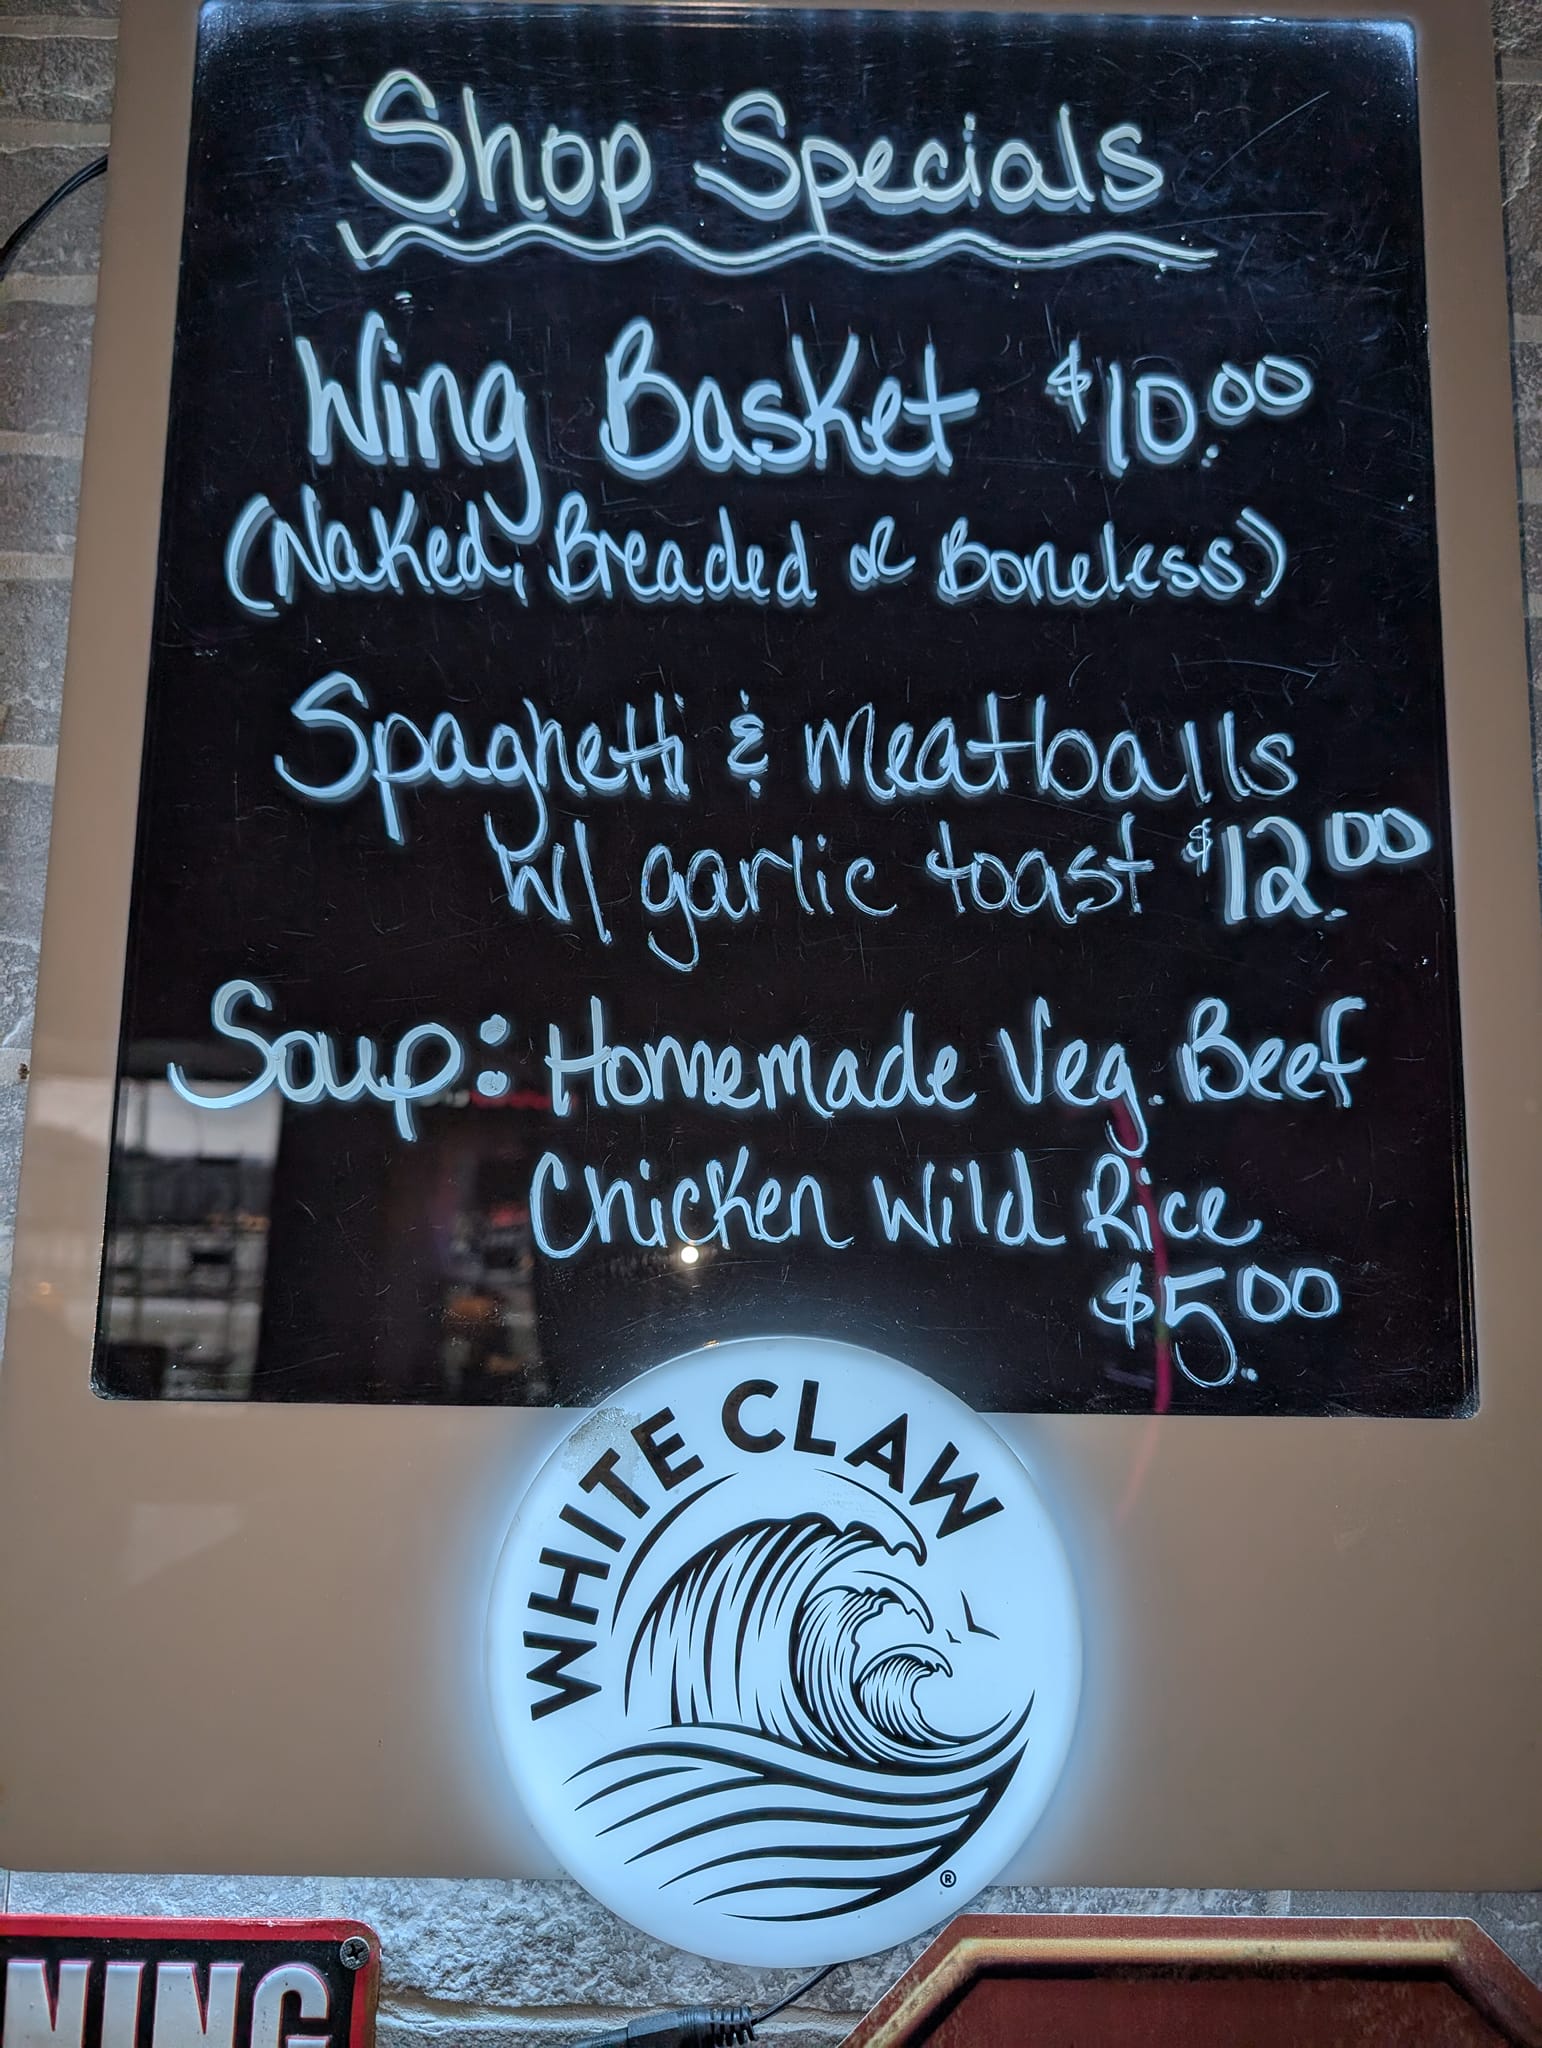 Shop Specials
Wing Basket $10.00
(Naked, Breaded or Boneless)
Spaghetti & Meatballs
w/ garlic toast $12.00
Soup: Homemade Veg. Beef
Chicken Wild Rice
$5.00
WHITE CLAW
®
NING